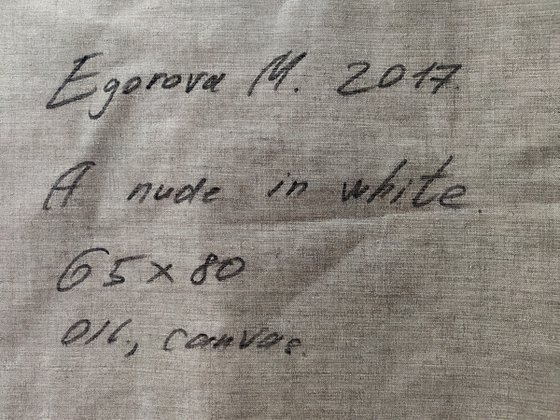 Egorova M. 2017.
A nude in white.
65x80
Oil, canvas.